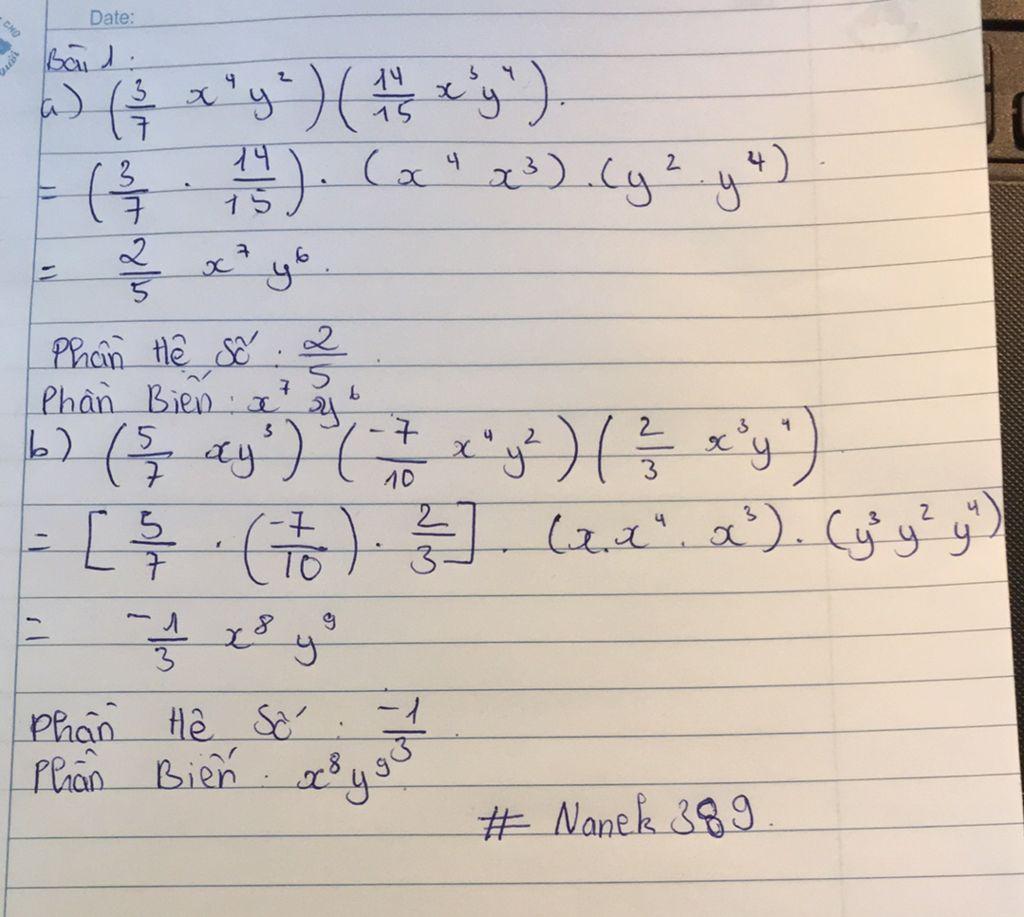 Date:
Bài 1:
a) (3/7 x⁴y²)(14/15 x³y⁴).
= (3/7 . 14/15) . (x⁴ x³) . (y² . y⁴)
= 2/5 x⁷ y⁶.
Phần Hệ Số : 2/5
Phần Biến : x⁷ y⁶
b) (5/7 xy³) (-7/10 x⁴y²) (2/3 x³y⁴)
= [5/7 . (-7/10) . 2/3] . (x.x⁴. x³) . (y³ y² y⁴)
= -1/3 x⁸ y⁹
Phần Hệ Số : -1/3
Phần Biến : x⁸y⁹
# Nanek 389.